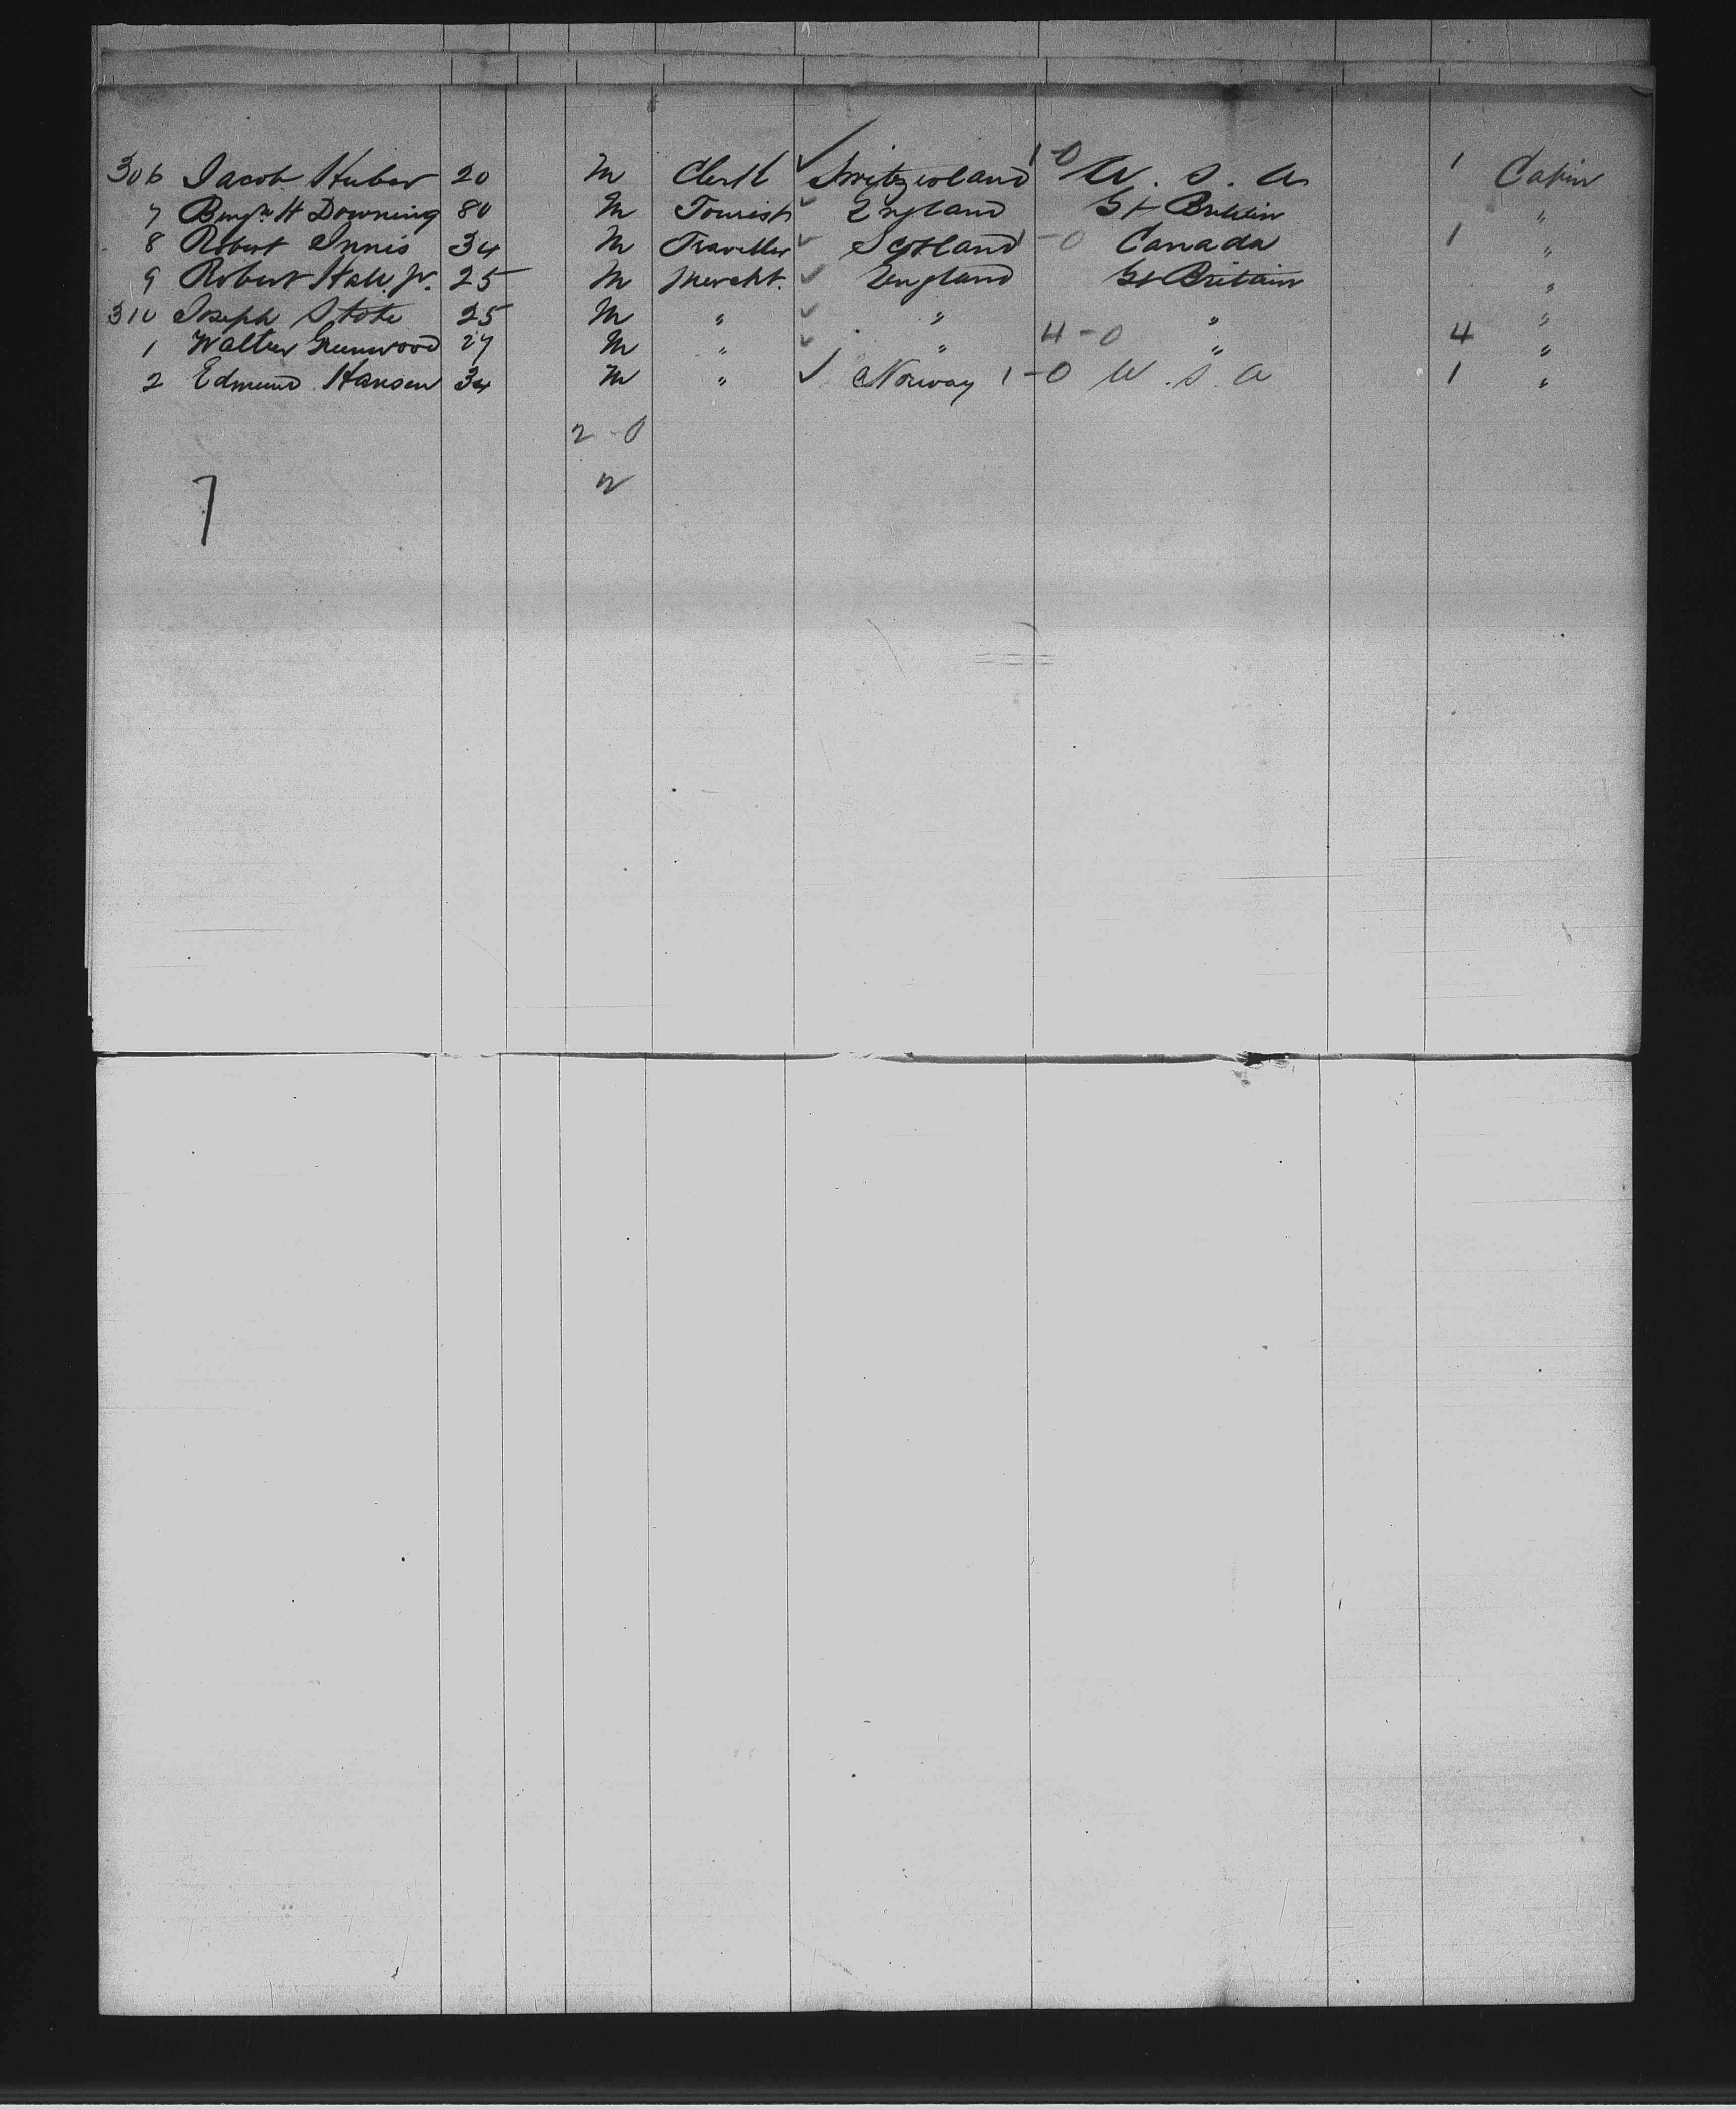 306 Jacob Huber 20 M Clerk ✓ Switzerland 1-0 U. S. A 1 Cabin
7 Benjn H Downing 80 M Tourist ✓ England Gt Britain "
8 Robert Innis 34 M Traveller ✓ Scotland 1-0 Canada 1 "
9 Robert Hall Jr. 25 M Mercht. ✓ England Gt Britain "
310 Joseph 25 M " ✓ " " "
1 Walter Greenwood 27 M " ✓ " 4-0 " 4 "
2 Edmund Hansen 34 M " ✓ Norway 1-0 U. S. A 1 "
2-0
7